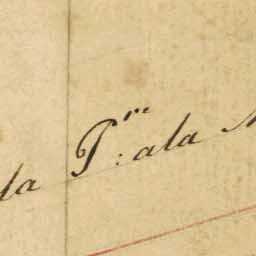 la P.ra: ala